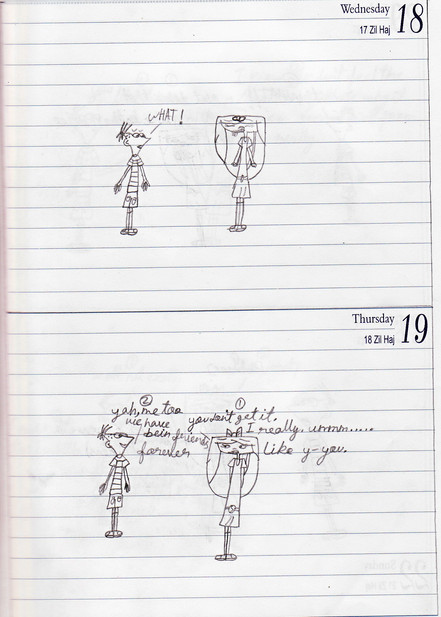 Wednesday 18
17 Zil Haj
WHAT!
Thursday 19
18 Zil Haj
② ①
yah, me too you don't get it.
we have I really, ummm......
bein friends like y-you.
forever